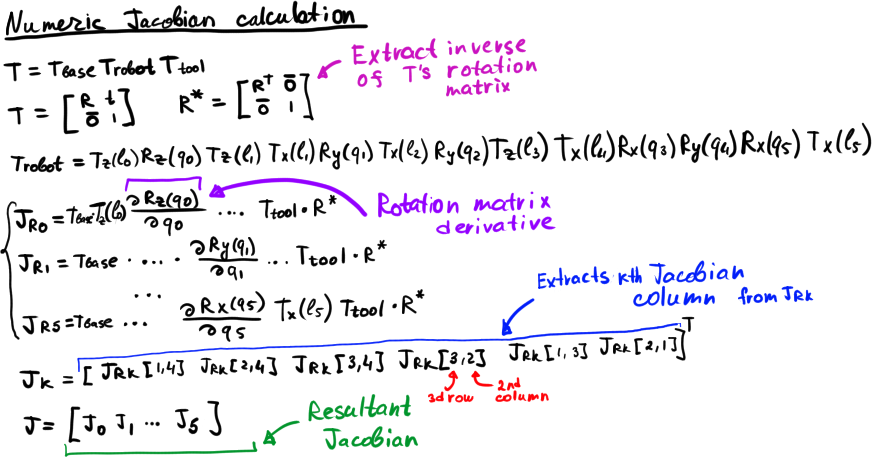 Numeric Jacobian calculation
T = Tbase Trobot Ttool
Extract inverse
of T's rotation
matrix
T = [R t; 0̅ 1] R* = [Rᵀ 0̅; 0̅ 1]
Trobot = Tz(l0) Rz(q0) Tz(l1) Tx(l1) Ry(q1) Tx(l2) Ry(q2) Tz(l3) Tx(l4) Rx(q3) Ry(q4) Rx(q5) Tx(l5)
JR0 = Tbase·Tz(l0) ∂Rz(q0)/∂q0 .... Ttool·R*
Rotation matrix
derivative
JR1 = Tbase · .... · ∂Ry(q1)/∂q1 ... Ttool·R*
...
JR5 = Tbase ... ∂Rx(q5)/∂q5 Tx(l5) Ttool·R*
Extracts kth Jacobian
column from JRK
JK = [JRK[1,4] JRK[2,4] JRK[3,4] JRK[3,2] JRK[1,3] JRK[2,1]]ᵀ
3d row 2nd column
J = [J0 J1 ... J5]
Resultant
Jacobian